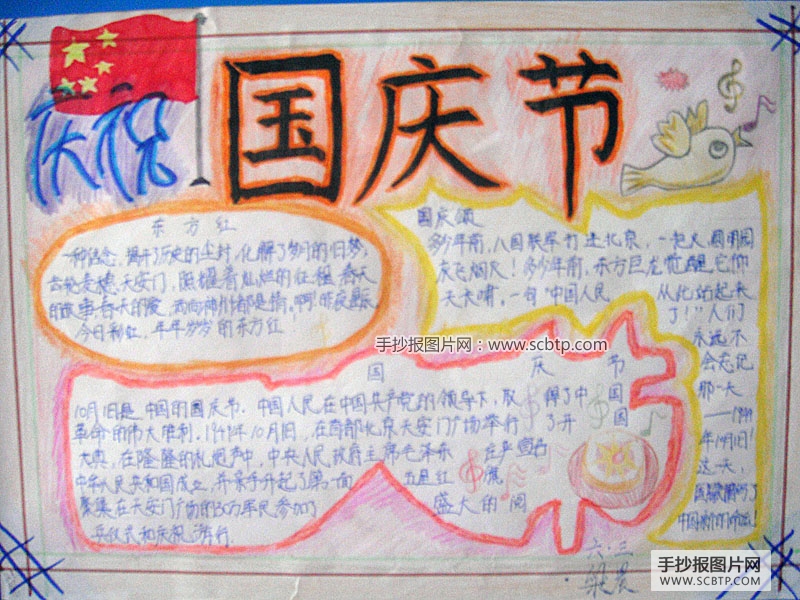 庆祝
国庆节
东方红
一种信念,揭开了历史的尘封,化解了岁月的旧梦,
天安门,照耀着灿烂的征程.春天
的故事春天的爱,
今日秋红,年年岁岁的东方红
国庆颂
多少年前,八国联军打进北京,一把火,圆明园
灰飞烟灭!多少年前,东方巨龙觉醒,它仰
天长啸,一句"中国人民
从此站起来
了!"人们
永远不
会忘记
那一天
——1949
年10月1日!
这一天,
国庆节
10月1日是中国的国庆节.中国人民在中国共产党的领导下,取得了中国
革命的伟大胜利.1949年10月1日,在首都北京天安门广场举行了开国
大典,在隆隆的礼炮声中,中央人民政府主席毛泽东在庄严宣告
中华人民共和国成立,并亲手升起了第一面五星红
聚集在天安门广场的30万军民参加了盛大的阅
兵仪式和庆祝游行.
手抄报图片网:www.scbtp.com
六.三
手抄报图片网
WWW.SCBTP.COM